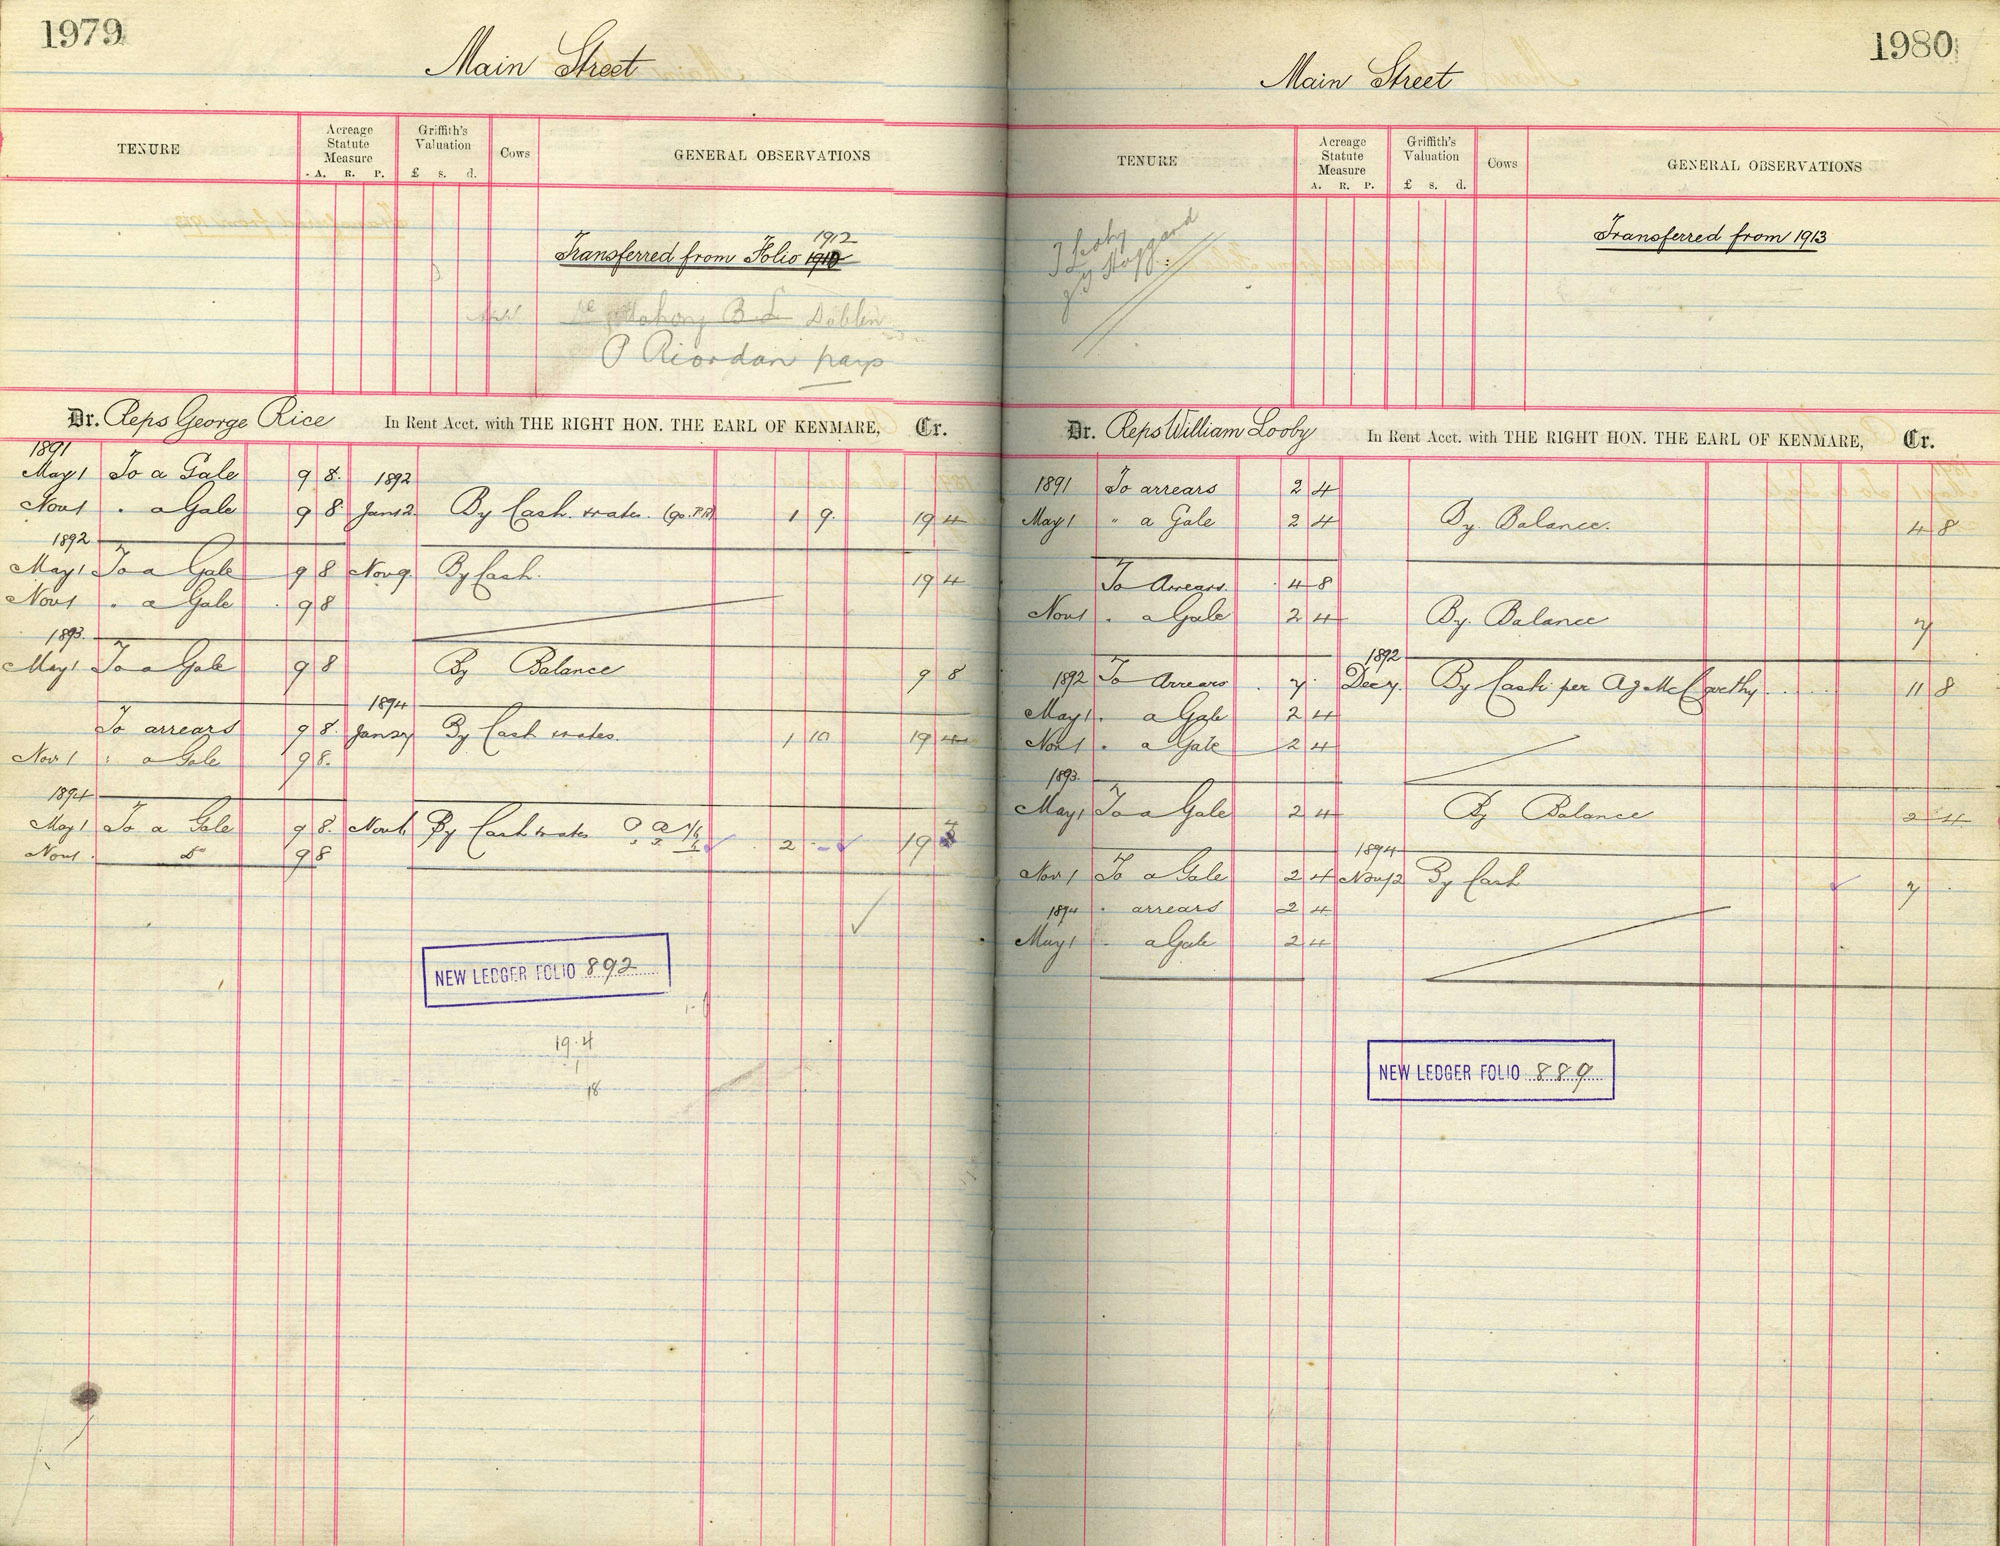 1979
Main Street
TENURE
Acreage Statute Measure
A. R. P.
Griffith's Valuation
£ s. d.
Cows
GENERAL OBSERVATIONS
1912
Transferred from Folio 1910
Mahony B.L. Dublin
P Riordan pays
Dr. Reps George Rice In Rent Acct. with THE RIGHT HON. THE EARL OF KENMARE, Cr.
1891
May 1 To a Gale 9 8. 1892
Nov 1 " a Gale 9 8 Jany 2. By Cash & rates. 1 9. 19 4
1892
May 1 To a Gale 9 8 Nov 9. By Cash. 19 4
Nov 1 " a Gale 9 8
1893
May 1 To a Gale 9 8 By Balance 9 8
1894
To arrears 9 8. Jan 27 By Cash & rates. 1 10 19 4
Nov 1 " a Gale 9 8.
1894
May 1 To a Gale 9 8. Nov 6 By Cash & rates 2 - 19
Nov 1 Do 9 8
NEW LEDGER FOLIO 892
19.4
1
18
1980
Main Street
TENURE
Acreage Statute Measure
A. R. P.
Griffith's Valuation
£ s. d.
Cows
GENERAL OBSERVATIONS
Transferred from 1913
Dr. Reps William Looby In Rent Acct. with THE RIGHT HON. THE EARL OF KENMARE, Cr.
1891 To arrears 2 4
May 1 " a Gale 2 4 By Balance. 4 8
To Arrears. 4 8
Nov 1 " a Gale 2 4 By Balance 7
1892
1892 To Arrears 7 Dec 7. By Cash per A J McCarthy 11 8
May 1 " a Gale 2 4
Nov 1 " a Gale 2 4
1893
May 1 To a Gale 2 4 By Balance 2 4
1894
Nov 1 To a Gale 2 4 Nov 12 By Cash 7
1894 " arrears 2 4
May 1 " a Gale 2 4
NEW LEDGER FOLIO 889